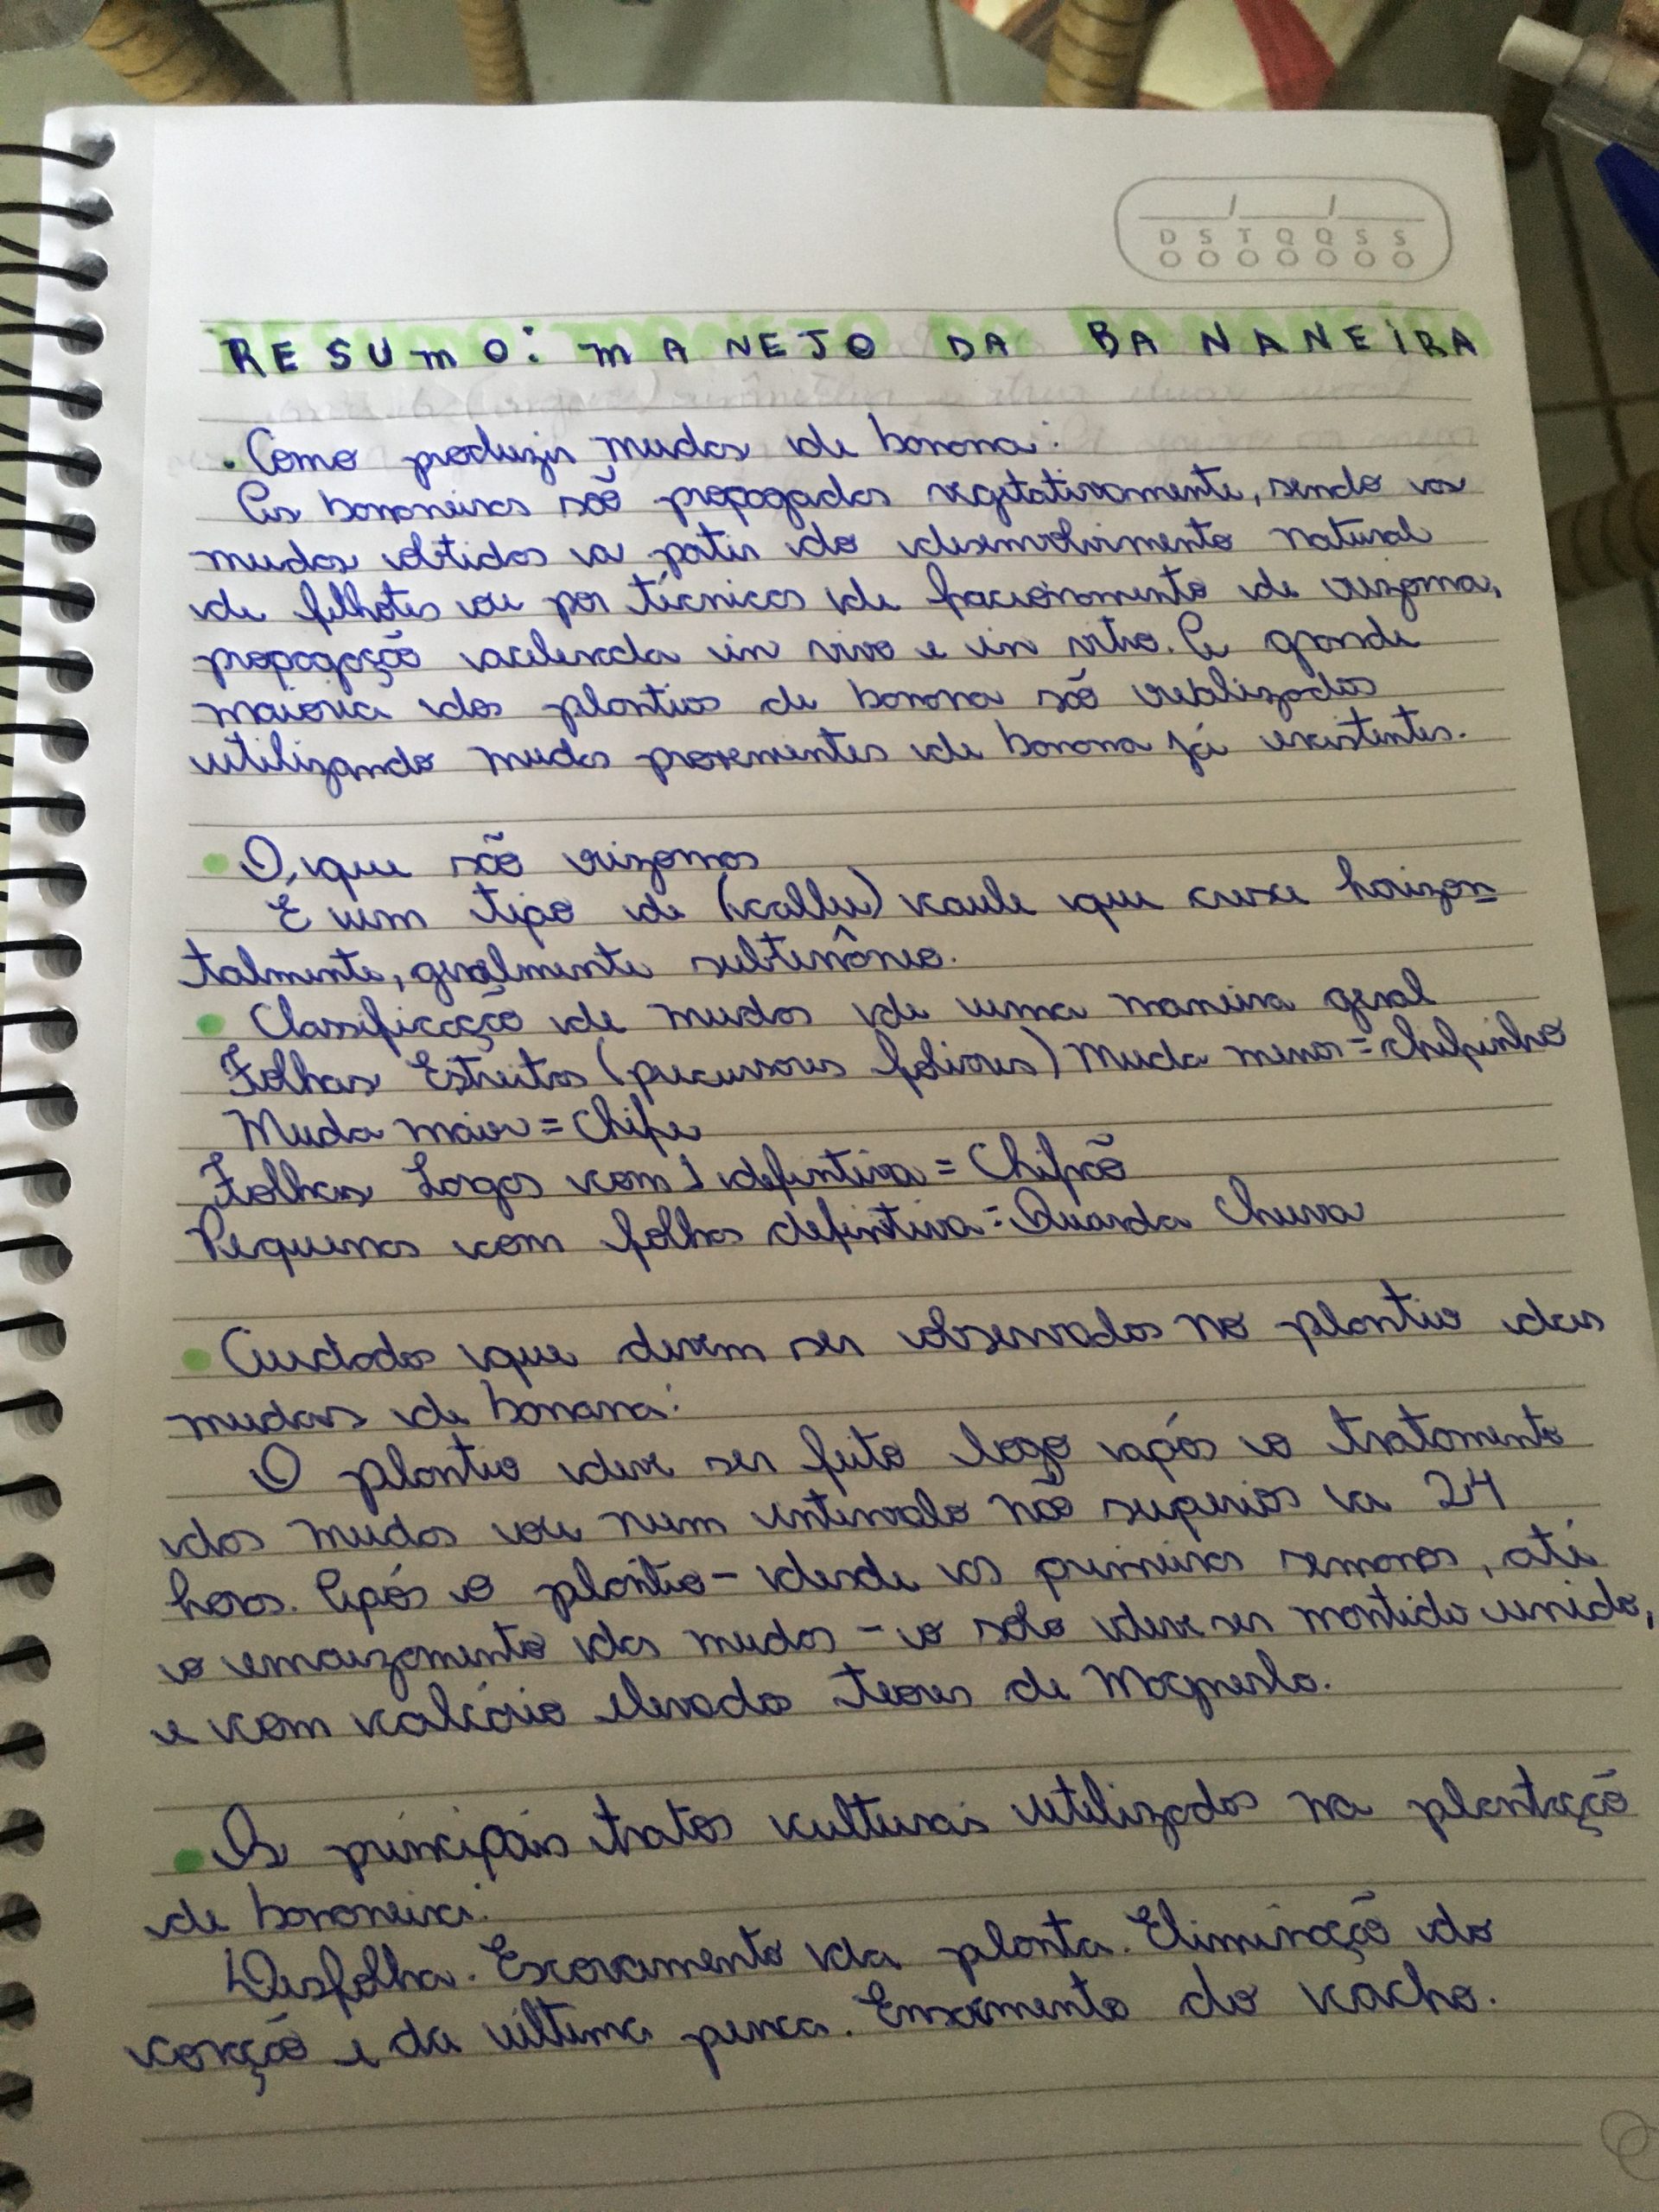 D S T Q Q S S
RESUMO: MANEJO DA BANANEIRA
• Como produzir mudas de banana:
As bananeiras são propagadas vegetativamente, sendo as
mudas obtidas a patir do desenvolvimento natural
de filhotes ou por técnicas de fracionamento de rizoma,
propagação acelerada in vivo e in vitro. A grande
maioria dos plantios de banana são realizados
utilizando mudas provenientes de banana já existentes.
• O que são rizomas
É um tipo de (callu) caule que cresce horizon
talmente, geralmente subterrâneo.
• Classificação de mudas de uma maneira geral
Folhas Estreitas (precursores foliares) Muda menor = chifrinho
Muda maior = Chifre
Folhas Largas com 1 defintiva = Chifrão
Pequenas com folhas defintiva = Guarda Chuva
• Cuidados que devem ser observados no plantio das
mudas de banana:
O plantio deve ser feito logo após o tratamento
das mudas ou num intervalo não superior a 24
horas. Após o plantio - desde as primeiras semanas, até
o enraizamento das mudas - o solo deve ser mantido umido,
e com calcário elevados teores de Magnesio.
• Os principais tratos culturais utilizados na plantação
de bananeira:
Desfolha. Escoramento da planta. Eliminação do
coração e da última penca. Ensacamento do cacho.